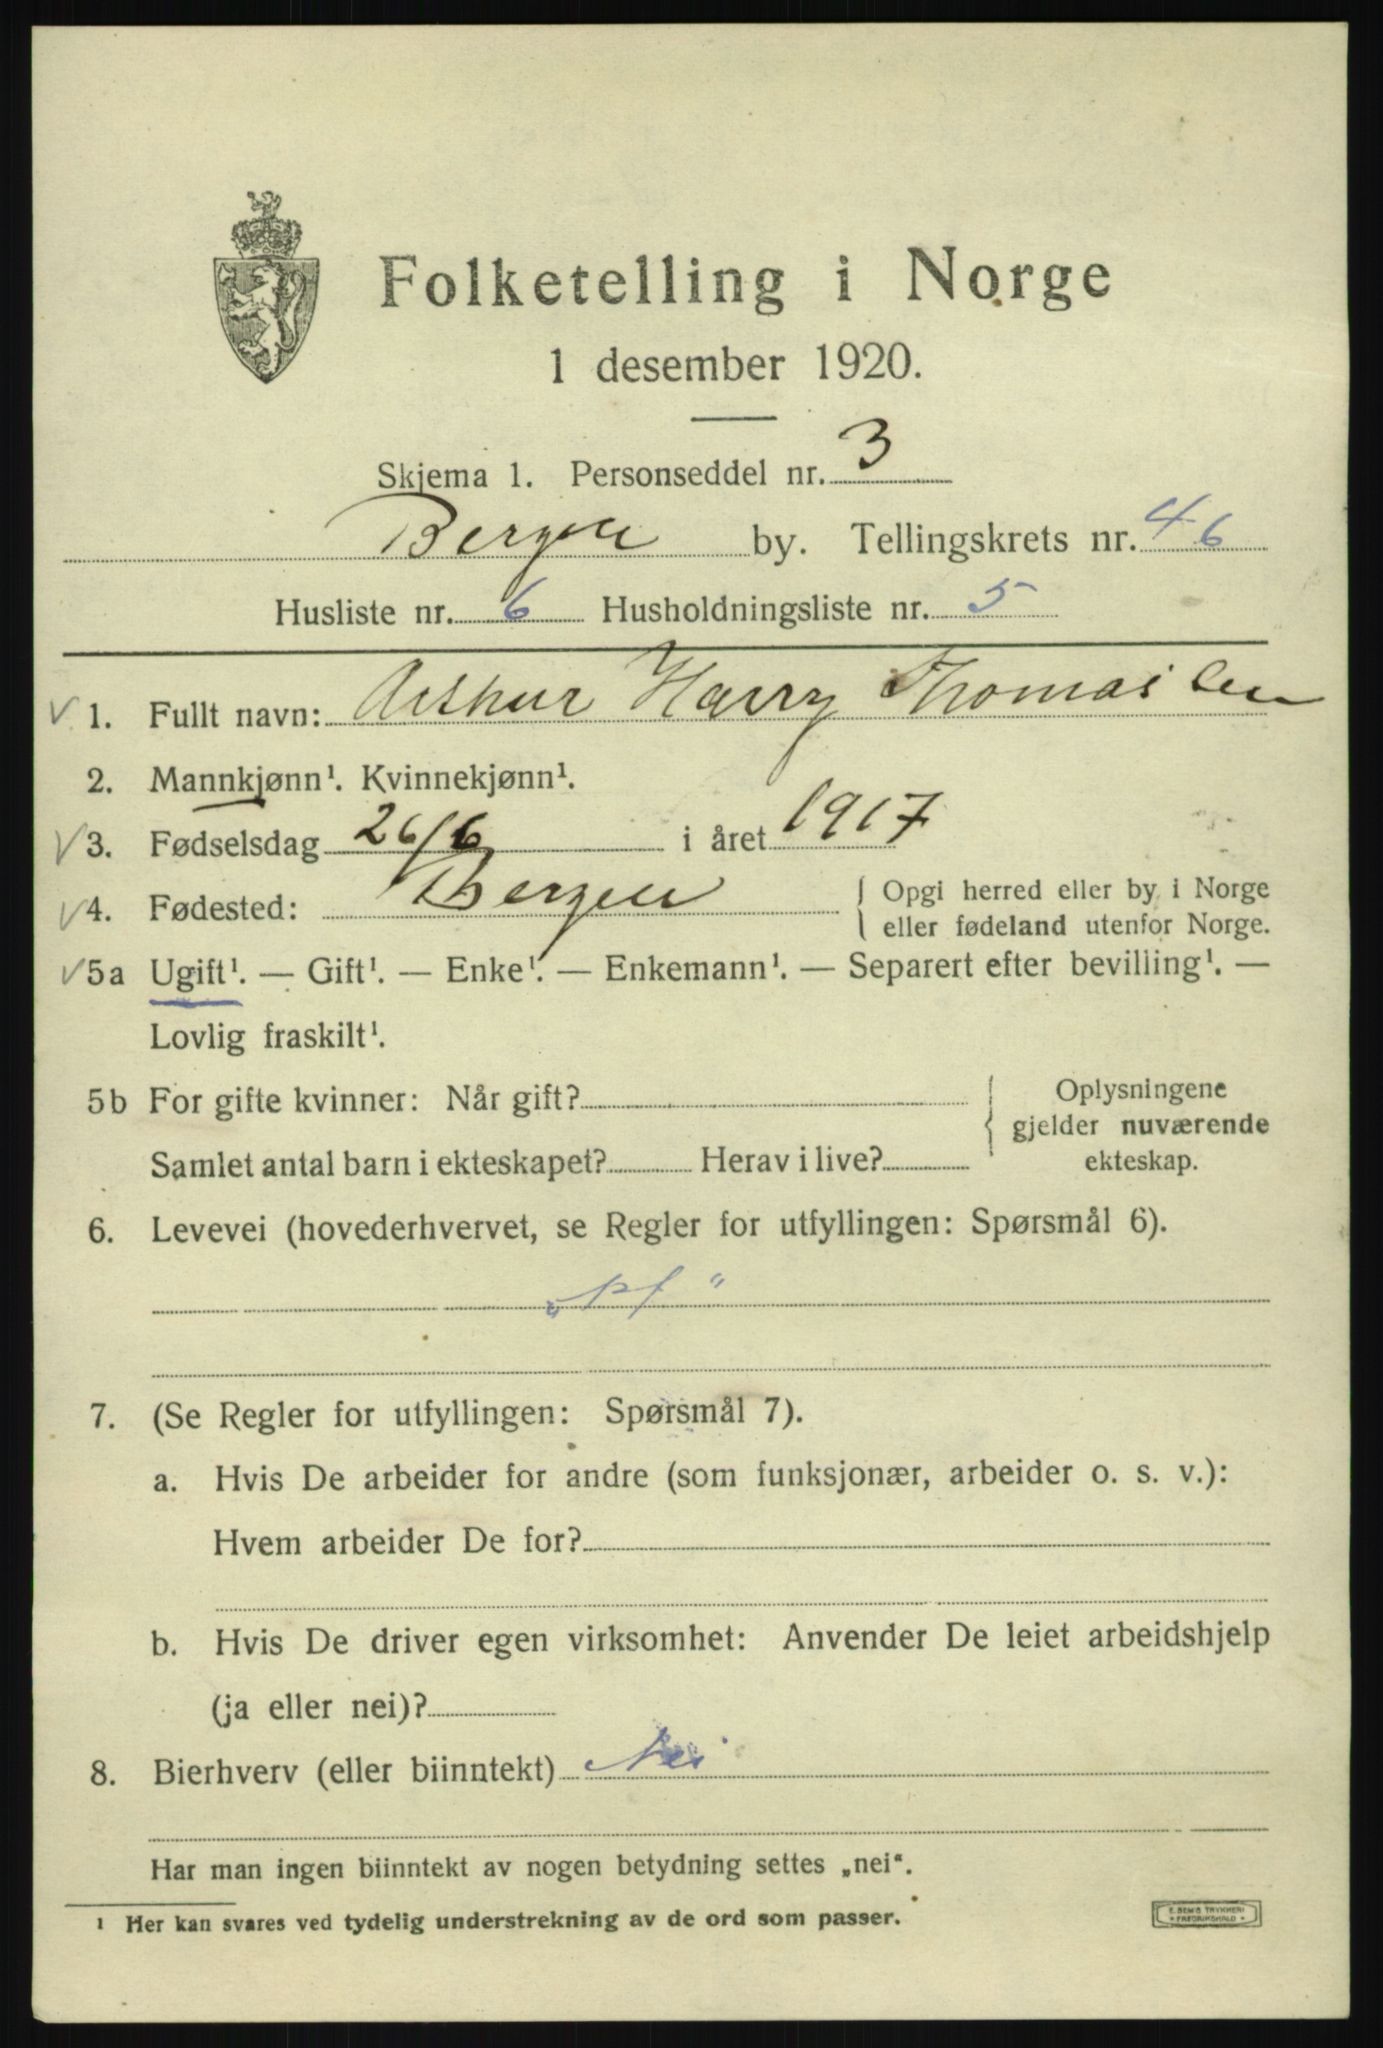 Folketelling i Norge
1 desember 1920.
Skjema 1. Personseddel nr. 3
Bergen by. Tellingskrets nr. 46
Husliste nr. 6 Husholdningsliste nr. 5
√ 1. Fullt navn: Arthur Harry Thomassen
2. Mannkjønn¹. Kvinnekjønn¹.
√ 3. Fødselsdag 26/6 i året 1917
√ 4. Fødested: Bergen { Opgi herred eller by i Norge
eller fødeland utenfor Norge.
√ 5a Ugift¹. — Gift¹. — Enke¹. — Enkemann¹. — Separert efter bevilling¹. —
Lovlig fraskilt¹.
5b For gifte kvinner: Når gift? { Oplysningene
gjelder nuværende
Samlet antal barn i ekteskapet? Herav i live? ekteskap.
6. Levevei (hovederhvervet, se Regler for utfyllingen: Spørsmål 6).
7. (Se Regler for utfyllingen: Spørsmål 7).
a. Hvis De arbeider for andre (som funksjonær, arbeider o. s. v.):
Hvem arbeider De for?
b. Hvis De driver egen virksomhet: Anvender De leiet arbeidshjelp
(ja eller nei)?
8. Bierhverv (eller biinntekt) Nei
Har man ingen biinntekt av nogen betydning settes „nei“.
¹ Her kan svares ved tydelig understrekning av de ord som passer.
E. SEM'S TRYKKERI
FREDRIKSHALD